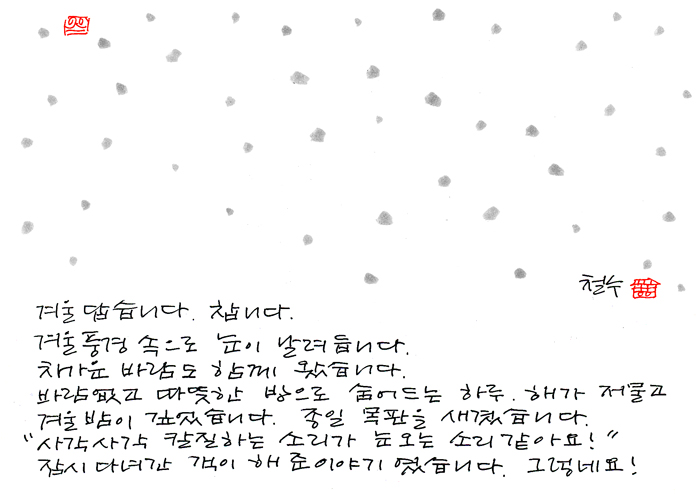 철수
겨울답습니다. 찹니다.
겨울풍경 속으로 눈이 날려듭니다.
차가운 바람도 함께 왔습니다.
바람없고 따뜻한 방으로 숨어드는 하루. 해가 저물고
겨울밤이 깊었습니다. 종일 목판을 새겼습니다.
"사각사각 칼질하는 소리가 눈오는 소리같아요!"
잠시 다녀간 객이 해준이야기였습니다. 그렇네요!